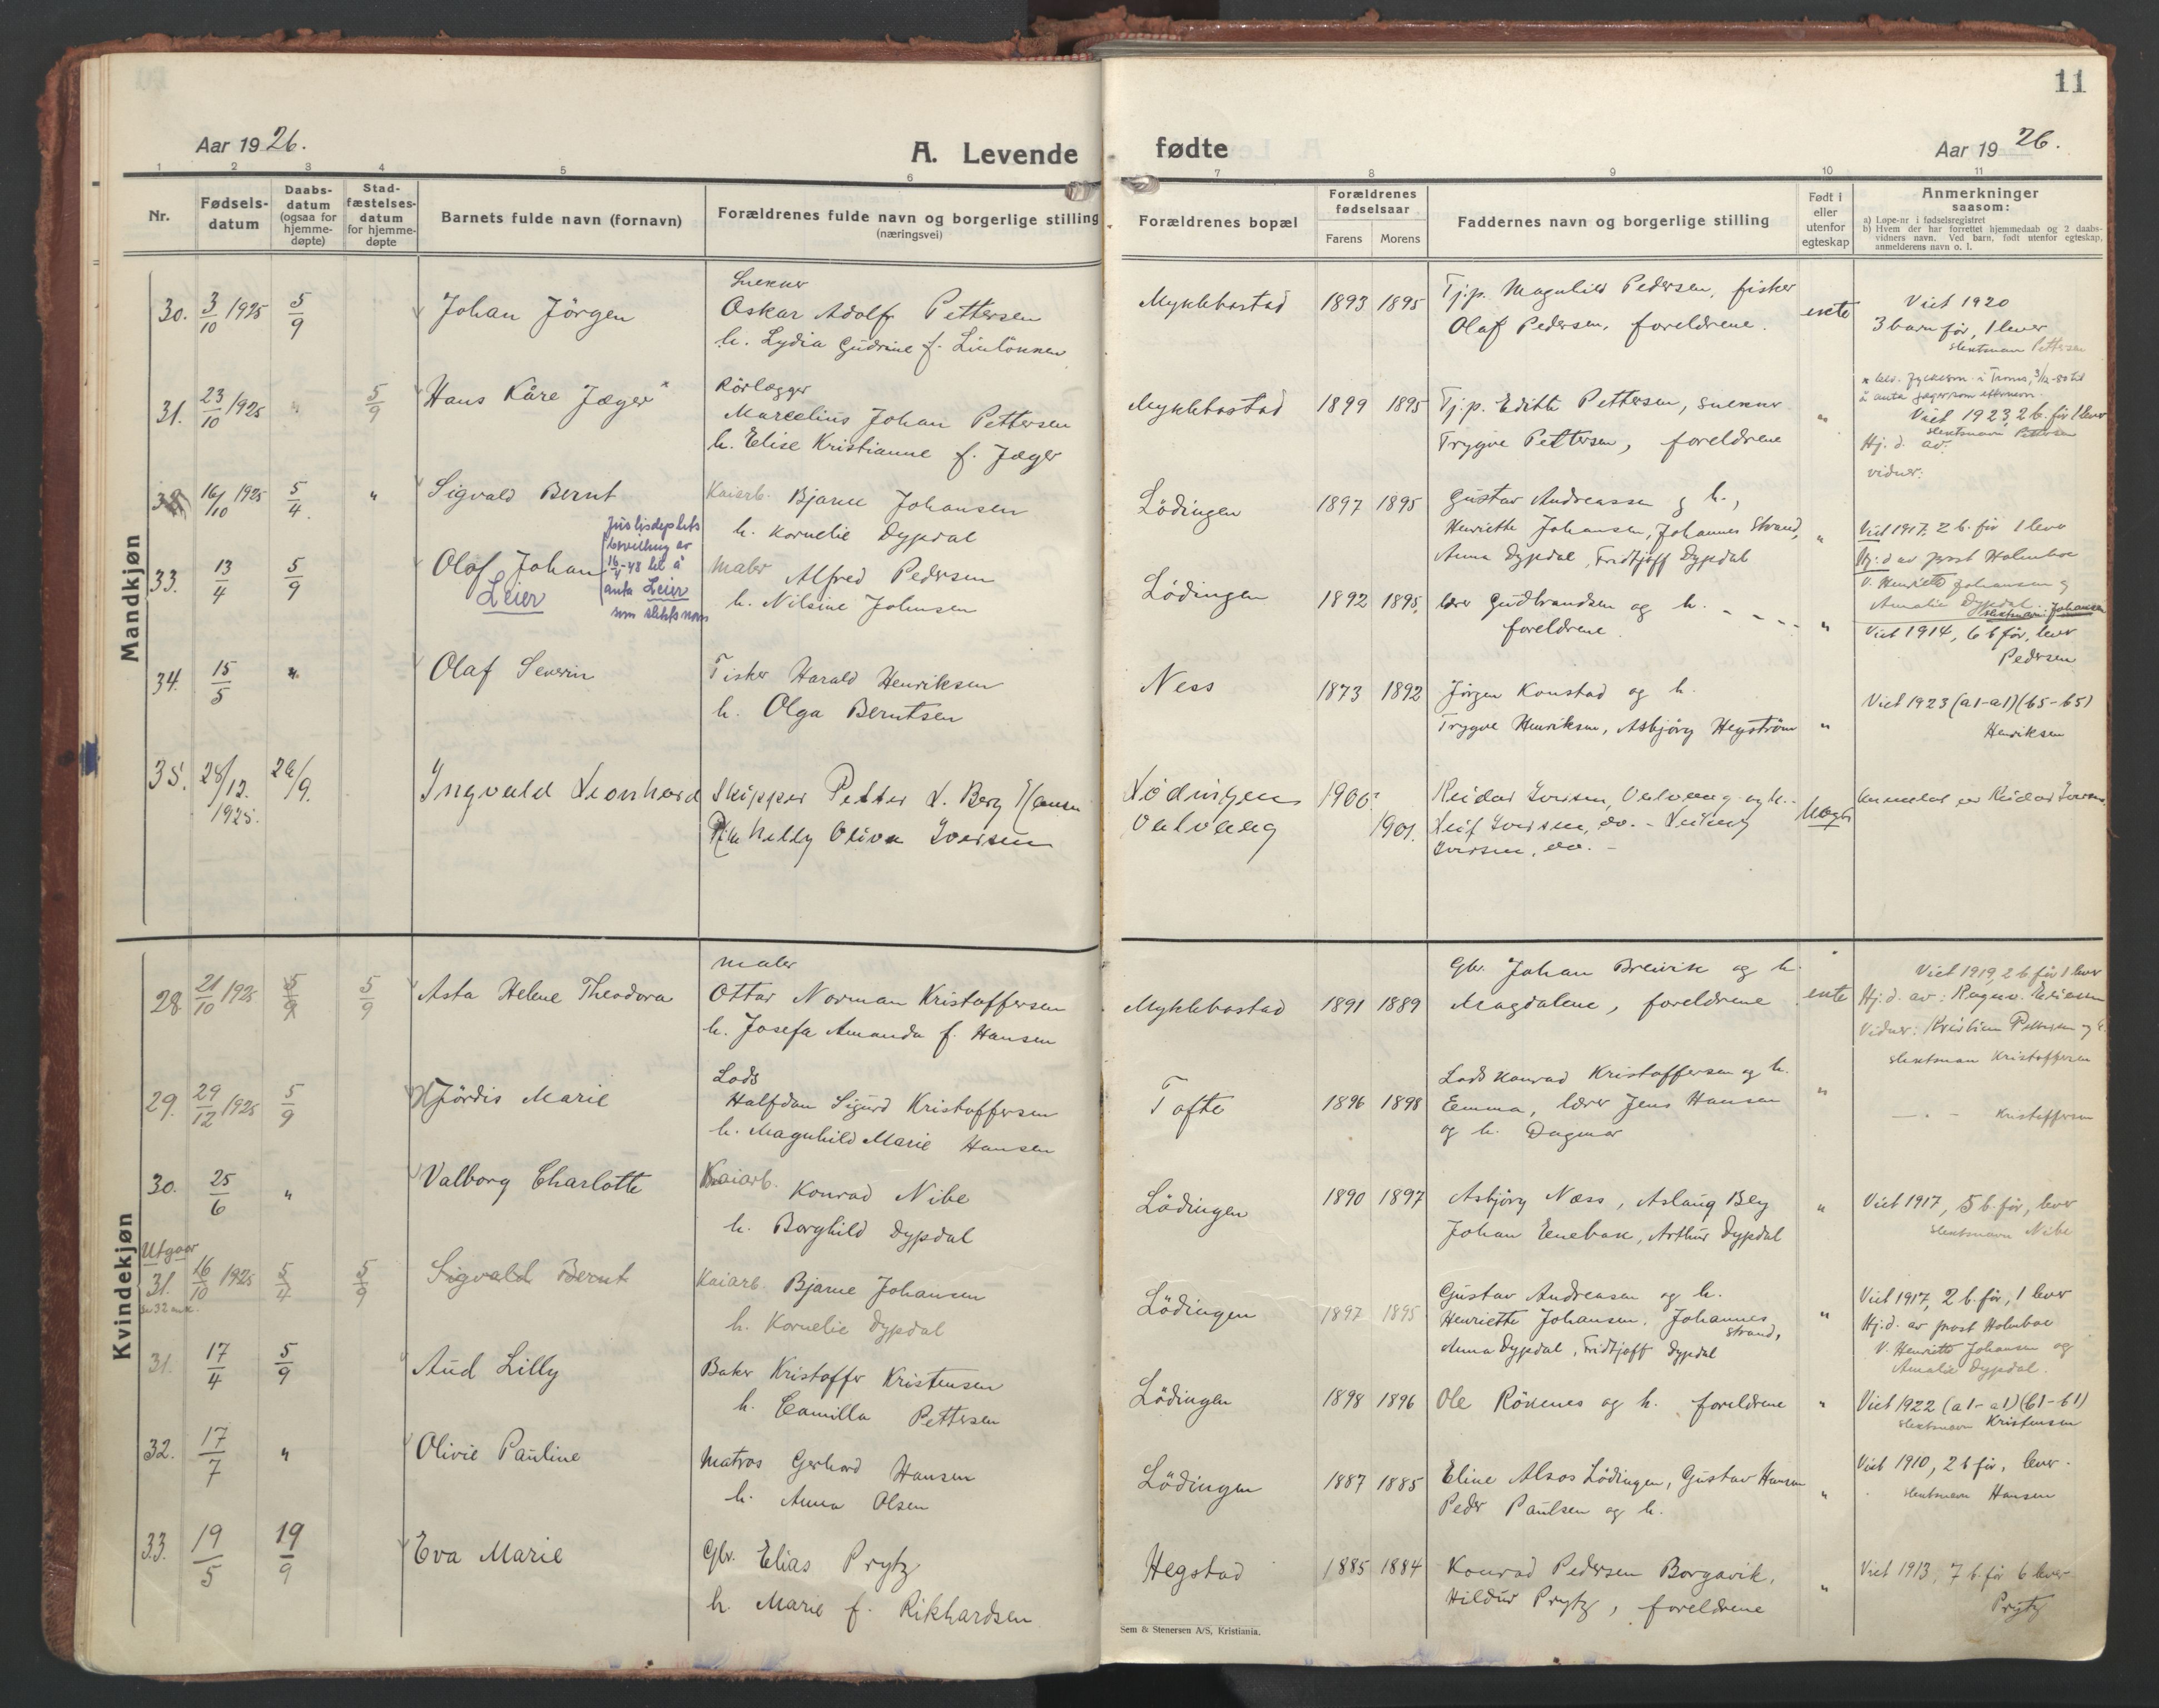 11
Aar 1926.
A. Levende fødte
Aar 1926.
1 2 3 4 5 6 7 8 9 10 11
Nr.
Fødsels-
datum
Daabs-
datum
(ogsaa for
hjemme-
døpte)
Stad-
fæstelses-
datum
for hjemme-
døpte
Barnets fulde navn (fornavn)
Forældrenes fulde navn og borgerlige stilling
(næringsvei)
Forældrenes bopæl
Forældrenes
fødselsaar
Farens Morens
Faddernes navn og borgerlige stilling
Født i
eller
utenfor
egteskap
Anmerkninger
saasom:
a) Løpe-nr i fødselsregistret
b) Hvem der har forrettet hjemmedaab og 2 daabs-
vidners navn. Ved barn, født utenfor egteskap,
anmelderens navn o. l.
Mandkjøn
30. 3/10 1925 5/9 Johan Jörgen
Snekker
Oskar Adolf Pettersen
h. Lydia Gudrine f.
Myklebostad 1893 1895
Tj.p. Magnhild Pedersen, fisker
Olaf Pedersen, foreldrene.
ekte
Viet 1920
3 barn før, 1 lever
slektsnavn Pettersen
31. 23/10 1925 " 5/9 Hans Kåre Jæger *
Rörlægger
Marcelius Johan Pettersen
h. Elise Kristianne f. Jæger
Myklebostad 1899 1895
Tj.p. Edith Pettersen, snekker
Trygve Pettersen, foreldrene
"
i Troms, 3/12-
å anta Jæger som etternavn
Viet 1923, 2 b. før 1 lever
slektsnavn Pettersen
Hj. d. av:
vidner:
32 16/10 1925 5/4 " Sigvald Bernt
Kaiarb. Bjarne Johansen
h. Kornelie Dypdal
Lödingen 1897 1895
Gustav Andreassen og h.,
Henriette Johansen, Johannes Strand,
Anna Dypdal, Fridtjoff Dypdal
"
Viet 1917, 2 b. før 1 lever
Hj. d av prost Holmboe
V. Henriette Johansen og
Amalie Dypdal.
slektsnavn: Johansen
33. 13/4 5/9 Olaf Johan
Leier
Justisdeptets
bevilling av
16/4-48 til å
anta Leier
som slektsnavn
Maler Alfred Pedersen
h. Nilsine Johnsen
Lödingen 1892 1895.
lærer Gudbrandsen og h. - - - -
foreldrene.
"
Viet 1914, 6 b før, lever
Pedersen
34. 15/5 " Olaf Severin
Fisker Harald Henriksen
h. Olga Berntsen
Ness 1873 1892
Jörgen Konstad og h.
Trygve Henriksen, Asbjörg Hegström
"
Viet 1923 (a1-a1)(b5-b5)
Henriksen
35. 28/12. 1925. 26/9. Ingvald Leonhard
Skipper Petter L. Berg Hansen
Pike Nelly Oliva Iversen
Lødingen
Valvaag
1900? 1901.
Reidar Iversen, Valvaag og h.
Leif Iversen, do. -
Iversen, do. -
Uegte
Anmeldt av Reidar Iversen
Kvindekjøn
28. 21/10 1925 5/9 5/9 Asta Helene Theodora
maler
Ottar Norman Kristoffersen
h. Josefa Amanda f. Hansen
Myklebostad 1891 1889
Gbr. Johan Breivik og h.
Magdalene, foreldrene
ekte
Viet 1919, 2 b før 1 lever
Hj. d. av: Ragnv. Eriksen
Vidner: Kristian Pettersen og
slektsnavn Kristoffersen
29. 29/12 1925 5/9 Hjördis Marie
Lods
Halfdan Sigurd Kristoffersen
h. Magnhild Marie Hansen
Tofte 1896 1898
Lods Konrad Kristoffersen og h.
Emma, lærer Jens Hansen
og h. Dagmar
"
— " — Kristoffersen
30. 25/6 " Valborg Charlotte
Kaiarb. Konrad Nibe
h. Borghild Dypdal
Lödingen 1890 1897
Asbjörg Næss, Aslaug Berg
Johan Enebak, Arthur Dypdal
"
Viet 1917, 5 b. før, lever
slektsnavn Nibe
Utgaar
31. 16/10 1925 5/4 5/9 Sigvald Bernt
se 32 m.k.
Kaiarb. Bjarne Johansen
h. Kornelie Dypdal
Lödingen 1897 1895
Gustav Andreasen og h.
Henriette Johansen, Johannes
Strand,
Anna Dypdal, Fridtjoff Dypdal
"
Viet 1917, 2 b. før, 1 lever
Hj. d. av prost Holmboe
V. Henriette Johansen og
Amalie Dypdal.
31. 17/4 5/9 Aud Lilly
Baker Kristoffer Kristensen
h. Camilla Pettersen
Lödingen 1898 1896
Ole Rönnes og h. foreldrene
"
Viet 1922 (a1-a1)(b1-b1)
slektsnavn Kristensen
32. 17/7 " Olivie Pauline
Matros Gerhard Hansen
h. Anna Olsen
Lödingen 1887 1885
Eline Alsos Lödingen, Gustav Hansen
Peder Paulsen og h.
"
Viet 1910, 2 b før, lever.
slektsnavn Hansen
33. 19/5 19/9 Eva Marie
Gbr. Elias Prytz
h. Marie f. Rikhardsen
Hegstad 1885 1884
Konrad Pedersen Borgavik,
Hildur Prytz, foreldrene
"
Viet 1913, 7 b. før 6 lever
Prytz
Sem & Stenersen A/S, Kristiania.